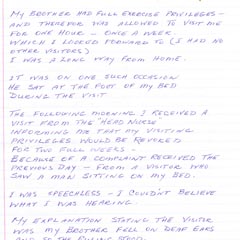 MY BROTHER HAD FULL EXERCISE PRIVILEGES -
AND THEREFOR WAS ALLOWED TO VISIT ME
FOR ONE HOUR - ONCE A WEEK
WHICH I LOOKED FORWARD TO (I HAD NO
OTHER VISITORS)
I WAS A LONG WAY FROM HOME.
IT WAS ON ONE SUCH OCCASION
HE SAT AT THE FOOT OF MY BED
DURING THE VISIT
THE FOLLOWING MORNING I RECEIVED A
VISIT FROM THE HEAD NURSE
INFORMING ME THAT MY VISITING
PRIVILEGES WOULD BE REVOKED
FOR TWO FULL WEEKS -
BECAUSE OF A COMPLAINT RECEIVED THE
PREVIOUS DAY - FROM A VISITOR WHO
SAW A MAN SITTING ON MY BED.
I WAS SPEECHLESS - I COULDN'T BELIEVE
WHAT I WAS HEARING.
MY EXPLANATION STATING THE VISITOR
WAS MY BROTHER FELL ON DEAF EARS
AND SO THE RULING STOOD.